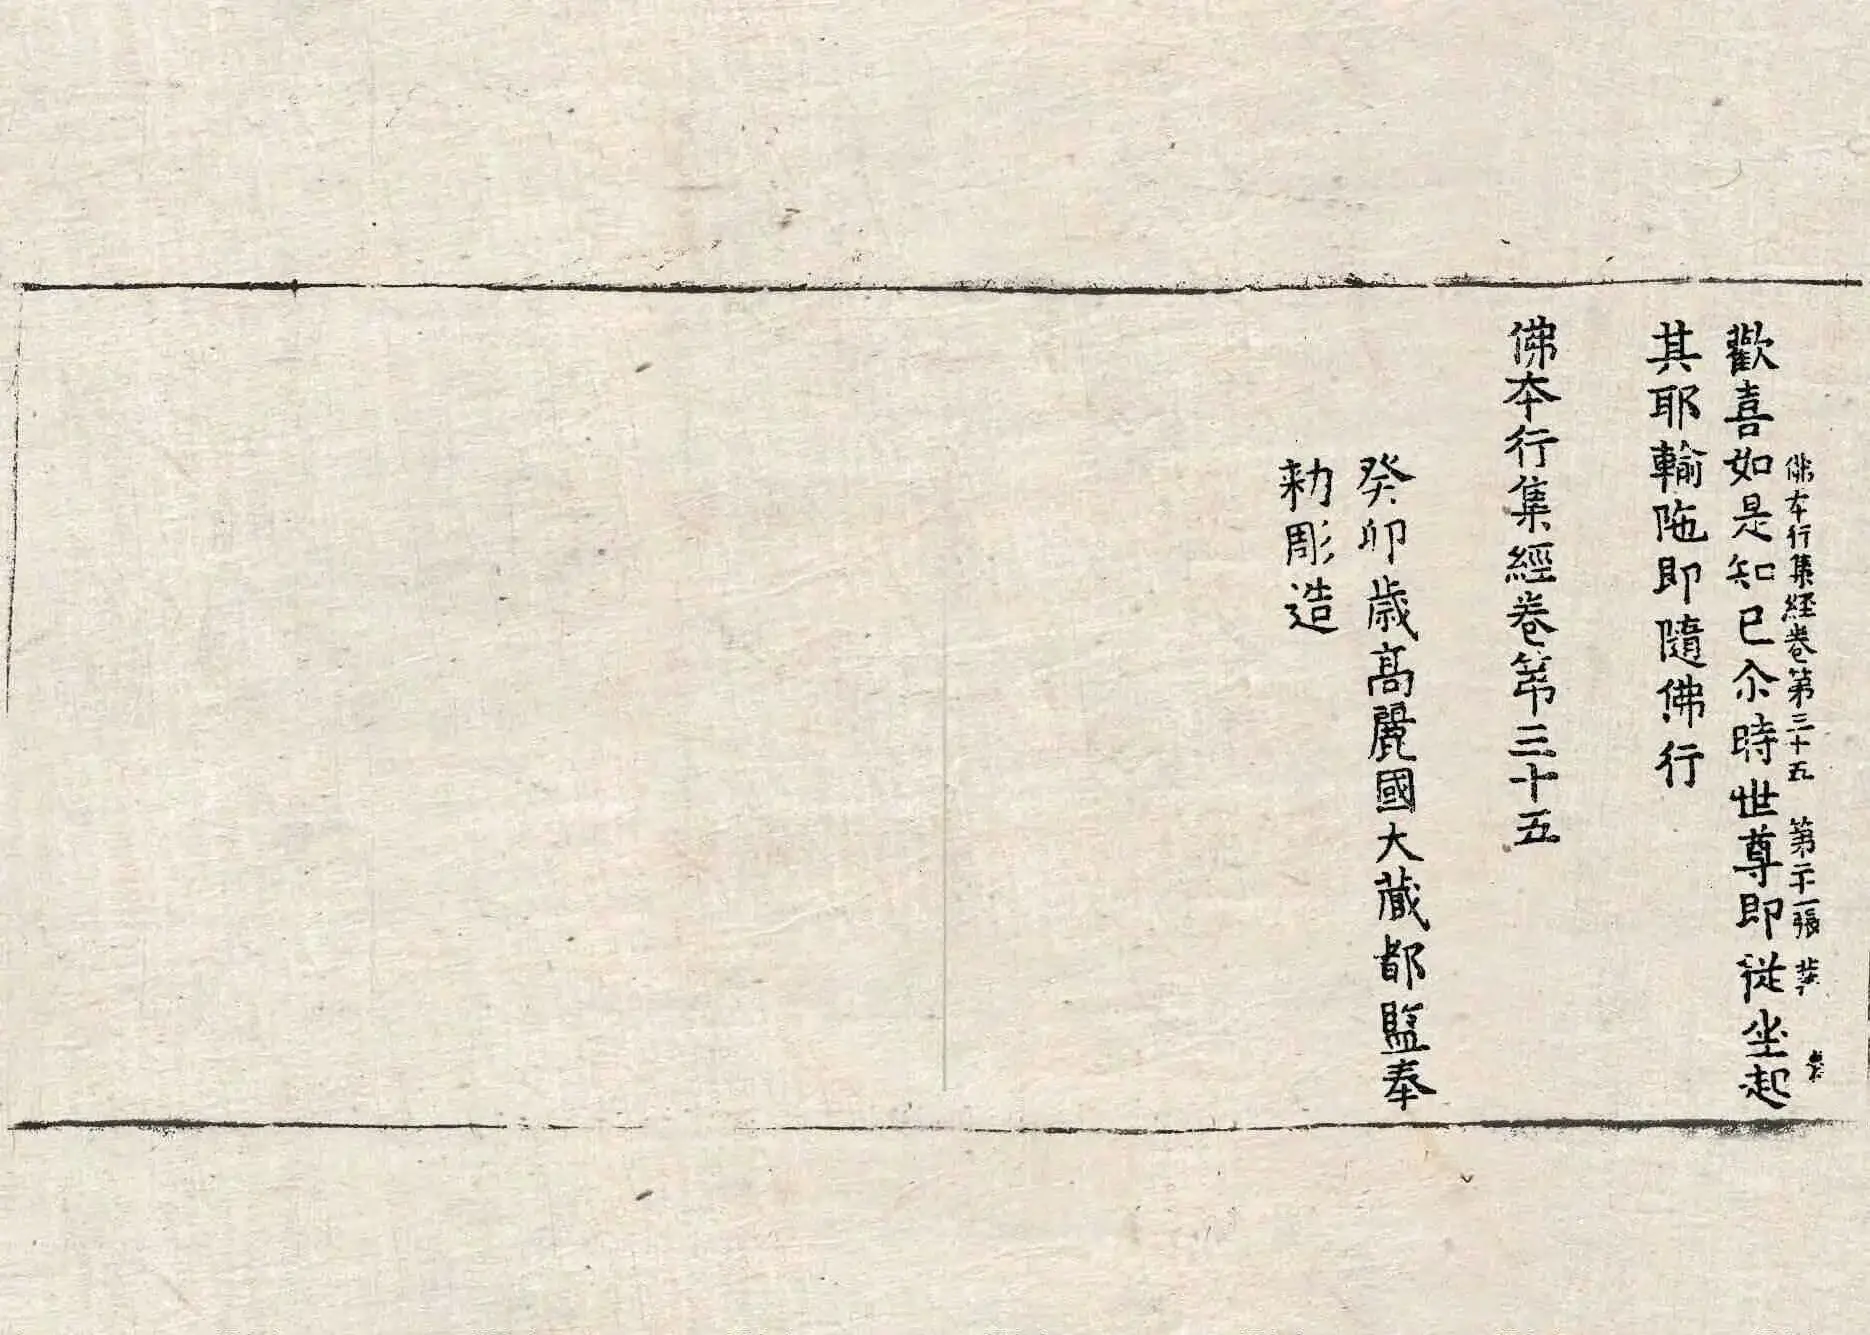 佛本行集経卷第三十五 第二十一張
歡喜如是知已尒時世尊即從坐起
其耶輸陁即隨佛行
佛本行集經卷第三十五
癸卯歲高麗國大藏都監奉
勅彫造